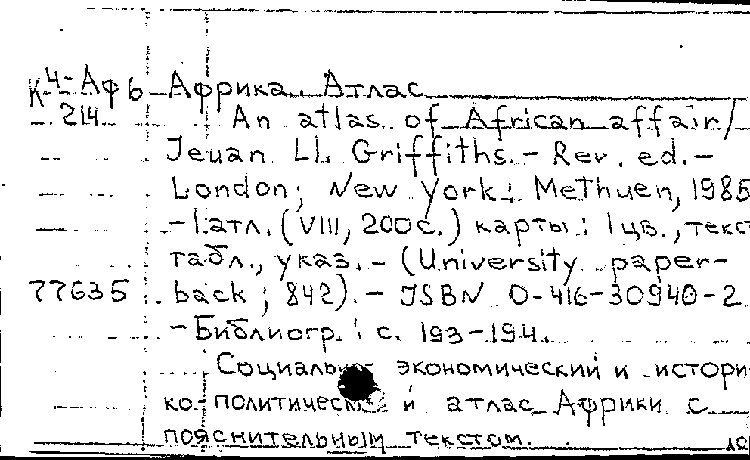 К 4-Аф 6 Африка. Атлас
214 An atlas of African affair/
Jeuan Ll. Griffiths. – Rev. ed. –
London; New York: Methuen, 1985
– 1 атл. (VIII, 200 с.) карты: 1 цв., текст
табл., указ. – (University paper-
77635 back; 842). – ISBN 0-416-30940-2
– Библиогр.: с. 193–194.
Социально экономический и истори
ко-политический атлас Африки с
пояснительным текстом.